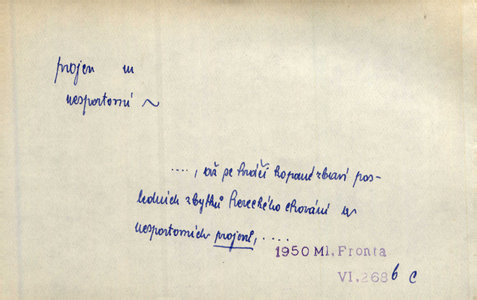 projev m
nesportovní ~
...., až se hráči kopané zbaví pos-
ledních zbytků hereckého chování a
nesportovních projevů, ....
1950 Ml. Fronta
VI. 268 6 c